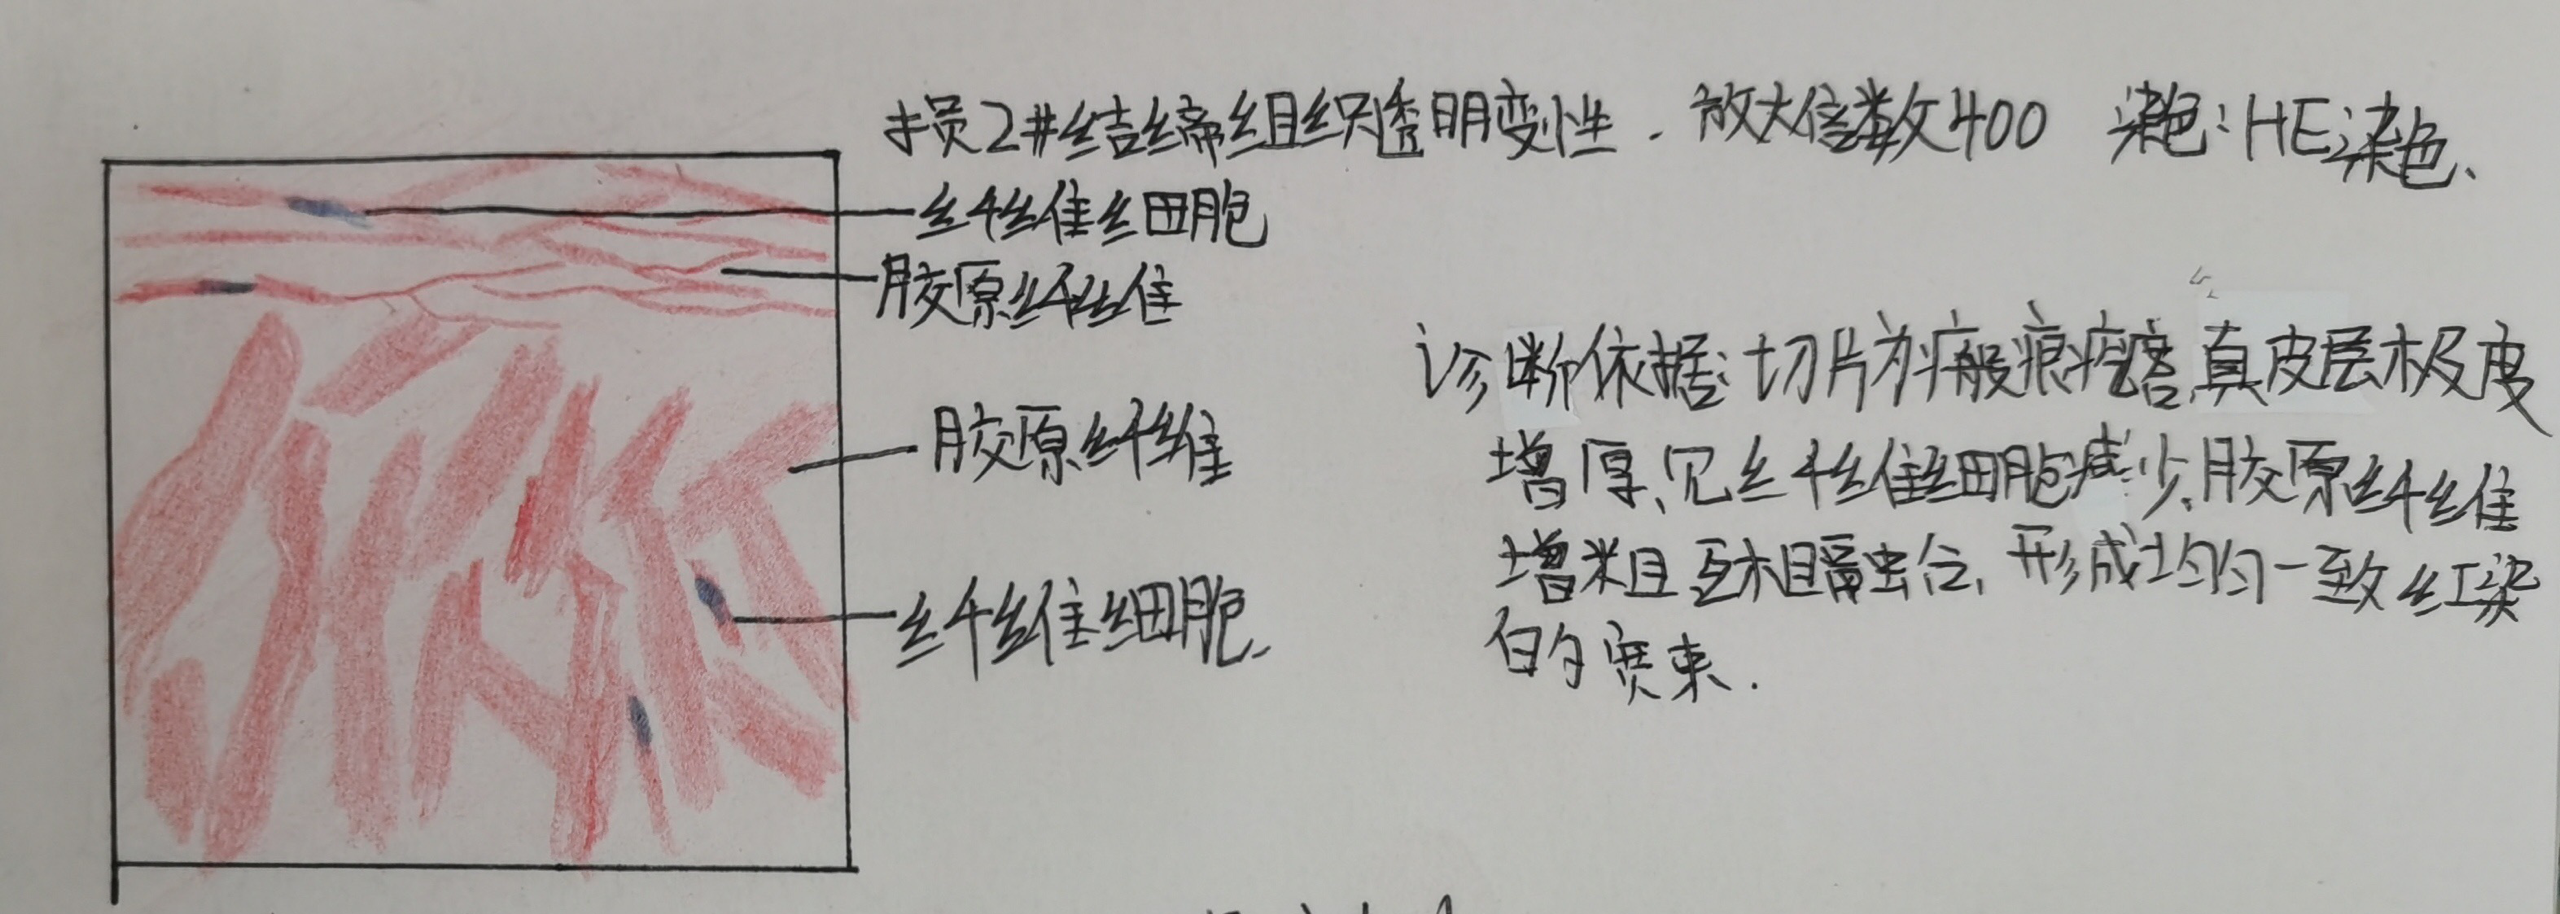 损2#结缔组织透明变性. 放大倍数400 染色:HE染色、
纤维细胞
胶原纤维
胶原纤维
纤维细胞.
诊断依据:切片为瘢痕疙瘩,真皮层极度
增厚、见纤维细胞减少,胶原纤维
增粗且互相融合,形成均匀一致红染
的宽束.